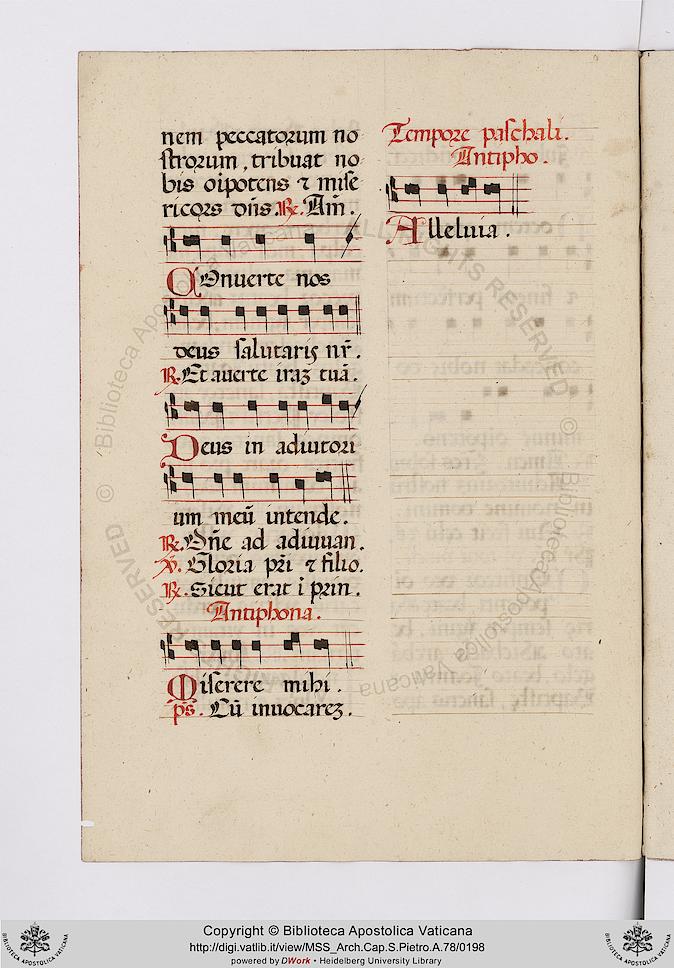 nem peccatorum no
strorum, tribuat no
bis oipotens ⁊ mise
ricors dn̄s. ℟. Am̄.
COnuerte nos
deus salutaris nr̄.
℟. Et auerte iraz tuā.
Deus in adiutori
um meū intende.
℟. Dn̄e ad adiuuan.
℣. Gloria pr̄i ⁊ filio.
℟. Sicut erat ī prin.
Antiphona.
Miserere mihi.
ps̄. Cū inuocarez.
Tempore paschali.
Antipho.
Alleluia.
Copyright © Biblioteca Apostolica Vaticana
http://digi.vatlib.it/view/MSS_Arch.Cap.S.Pietro.A.78/0198
powered by DWork • Heidelberg University Library
BIBLIOTECA APOSTOLICA VATICANA
BIBLIOTECA APOSTOLICA VATICANA